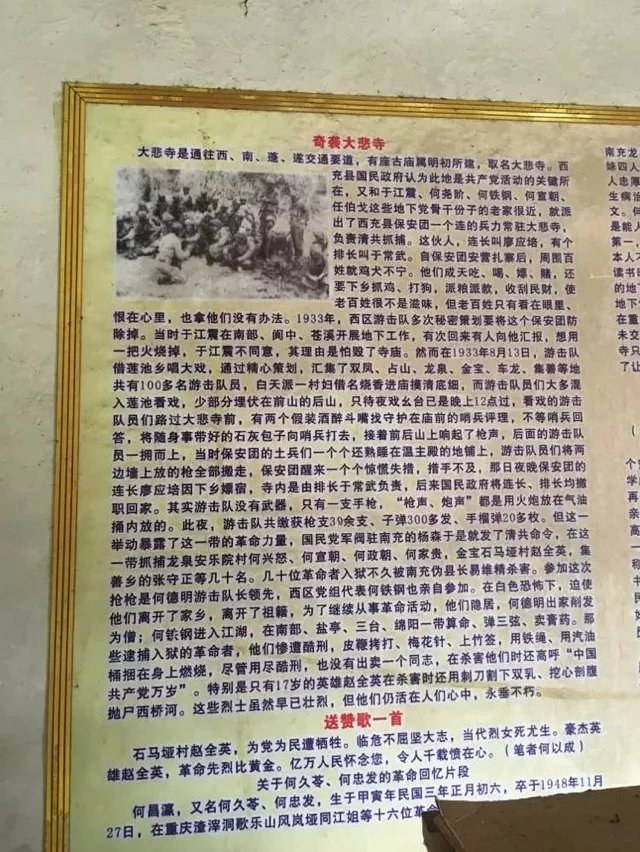 奇袭大悲寺
大悲寺是通往西、南、蓬、遂交通要道，有座古庙属明初所建，取名大悲寺。西
充县国民政府认为此地是共产党活动的关键所
在，又和于江震、何尧阶、何铁钢、何宣朝、
任伯戈这些地下党骨干份子的老家很近，就派
出了西充县保安团一个连的兵力常驻大悲寺，
负责清共抓捕。这伙人，连长叫廖应培，有个
排长叫于常武。自保安团安营扎寨后，周围百
姓就鸡犬不宁。他们成天吃、喝、嫖、赌，还
要下乡抓鸡、打狗，派粮派款，收刮民财，使
老百姓很不是滋味，但老百姓只有看在眼里、
恨在心里，也拿他们没有办法。1933年，西区游击队多次秘密策划要将这个保安团防
除掉。当时于江震在南部、阆中、苍溪开展地下工作，有次回来有人向他汇报，想用
一把火烧掉，于江震不同意，其理由是怕毁了寺庙。然而在1933年8月13日，游击队
借莲池乡唱大戏，通过精心策划，汇集了双凤、占山、龙泉、金宝、车龙、集善等地
共有100多名游击队员，白天派一村妇借名烧香进庙摸清底细，而游击队们大多混
入莲池看戏，少部分埋伏在前山的后山，只待夜戏幺台已是晚上12点过，看戏的游击
队员们路过大悲寺前，有两个假装酒醉斗嘴找守护在庙前的哨兵评理，不等哨兵回
答，将随身事带好的石灰包子向哨兵打去，接着前后山上响起了枪声，后面的游击
队员一拥而上，当时保安团的土兵们一个个还熟睡在温主殿的地铺上，游击队员们将两
边墙上放的枪全部搬走，保安团醒来一个个惊慌失措，措手不及，那日夜晚保安团的
连长廖应培因下乡嫖宿，寺内是由排长于常武负责，后来国民政府将连长、排长均撤
职回家。其实游击队没有武器，只有一支手枪，“枪声、炮声”都是用火炮放在气油
捅内放的。此夜，游击队共缴获枪支39余支、子弹300多发、手榴弹20多枚。但这一
举动暴露了这一带的革命力量，国民党军阀驻南充的杨森于是就发了清共命令，在这
一带抓捕龙泉安乐院村何兴怒、何宣朝、何政朝、何家贵，金宝石马垭村赵全英，集
善乡的张守正等几十名。几十位革命者入狱不久被南充伪县长易维精杀害。参加这次
抢枪是何德明游击队长领先，西区党组代表何铁钢也亲自参加。在白色恐怖下，迫使
他们离开了家乡，离开了祖籍，为了继续从事革命活动，他们隐居，何德明出家削发
为僧；何铁钢进入江湖，在南部、盐亭、三台、绵阳一带算命、弹三弦、卖膏药。那
些逮捕入狱的革命者，他们惨遭酷刑，皮鞭拷打、梅花针、上竹签，用铁绳、用汽油
桶捆在身上燃烧，尽管用尽酷刑，也没有出卖一个同志，在杀害他们时还高呼“中国
共产党万岁”。特别是只有17岁的英雄赵全英在杀害时还用刺刀割下双乳、挖心剖腹
抛尸西桥河。这些烈士虽然早已壮烈，但他们仍活在人们心中，永垂不朽。
送赞歌一首
石马垭村赵全英，为党为民遭牺牲。临危不屈坚大志，当代烈女死尤生。豪杰英
雄赵全英，革命先烈比黄金。亿万人民怀念您，令人千载愤在心。（笔者何以成）
关于何久苓、何忠发的革命回忆片段
何昌瀛，又名何久苓、何忠发，生于甲寅年民国三年正月初六，卒于1948年11月
27日，在重庆渣滓洞歌乐山风岚垭同江姐等十六位革命
南充龙
妹四人
人忠厚
生病治
文。
是能人
第一
本人不
读书
的地
在重
未交
的